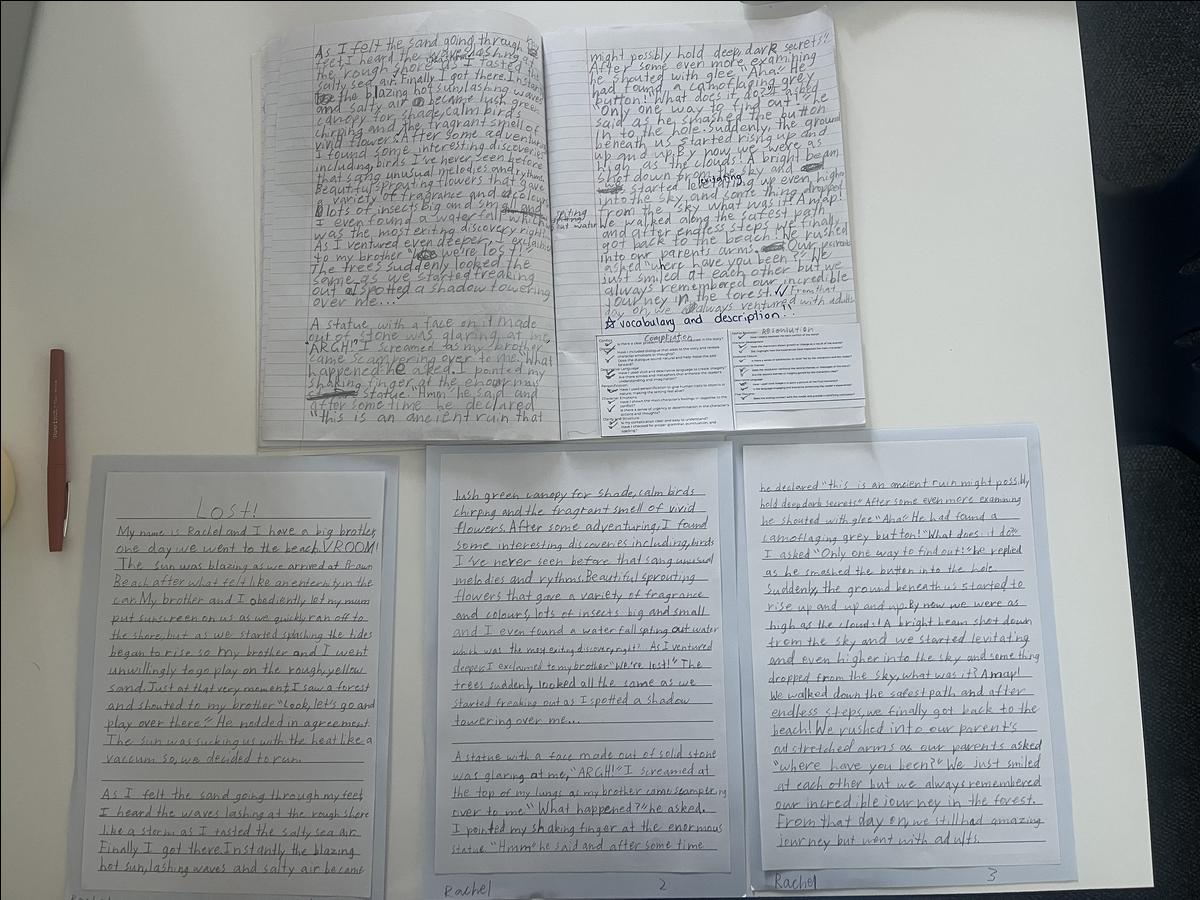 As I felt the sand going through my
feet, I heard the waves lashing at
the rough shore as I tasted the
salty sea air. Finally I got there. Instant
the blazing hot sun, lashing waves
and salty air became lush green
canopy for shade, calm birds
chirping and the fragrant smell of
vivid flower. After some adventuring
I found some interesting discoveries
including, birds I've never seen before
that sang unusual melodies and rythms.
Beautiful sprouting flowers that gave
a variety of fragrance and colour
lots of insects big and small and
I even found a waterfall which
was the most exiting discovery right
As I ventured even deeper, I exclaimed
to my brother "we're lost!"
The trees suddenly looked the
same as we started freaking
out as I spotted a shadow towering
over me...
A statue with a face on it made
out of stone was glaring at me,
"ARGH!" I screamed as my brother
came scampering over to me. "What
happened" he asked. I pointed my
shaking finger at the enormous
statue. "Hmm" he said and
after some time he declared
"this is an ancient ruin that
might possibly hold deep, dark secrets!"
After some even more examining
he shouted with glee "Aha!" He
had found a camoflaging grey
button! "What does it do?" I asked
"Only one way to find out!" he
said as he smashed the button
in to the hole. Suddenly, the ground
beneath us started rising up and
up and up. By now we were as
high as the clouds! A bright beam
shot down from the sky and
started levitating up even higher
into the sky and some thing dropped
from the sky what was it? A map!
We walked along the safest path
and after endless steps we finally
got back to the beach! We rushed
into our parents arms. Our parents
asked "where have you been?" We
just smiled at each other but we
always remembered our incredible
journey in the forest. From that
day on, we always ventured with adults
vocabulary and description..
Complication
Resolution
Lost!
My name is Rachel and I have a big brother,
one day we went to the beach. VROOM!
The Sun was blazing as we arrived at Prawn
Beach after what felt like an enternity in the
car. My brother and I obediently let my mum
put sunscreen on us as we quickly ran off to
the shore, but as we started splashing the tides
began to rise so my brother and I went
unwillingly to go play on the rough, yellow
sand. Just at that very moment, I saw a forest
and shouted to my brother "Look, let's go and
play over there." He nodded in agreement.
The sun was sucking us with the heat like a
vaccum so, we decided to run.
As I felt the sand going through my feet,
I heard the waves lashing at the rough shore
like a storm as I tasted the salty sea air.
Finally I got there. Instantly the blazing
hot sun, lashing waves and salty air became
Rachel
lush green canopy for shade, calm birds
chirping and the fragrant smell of vivid
flowers. After some adventuring, I found
some interesting discoveries including, birds
I've never seen before that sang unusual
melodies and rythms. Beautiful sprouting
flowers that gave a variety of fragrance
and colours, lots of insects big and small
and I even found a water fall spiting out water
which was the most exiting discovery right! As I ventured
deeper, I exclaimed to my brother "We're lost!" The
trees suddenly looked all the same as we
started freaking out as I spotted a shadow
towering over me...
A statue with a face made out of solid stone
was glaring at me, "ARGH!" I screamed at
the top of my lungs as my brother came scampering
over to me. "What happened?" he asked.
I pointed my shaking finger at the enormous
statue. "Hmm" he said and after some time
Rachel 2
he declared "this is an ancient ruin might possibly
hold deep dark secrets" After some even more examining
he shouted with glee "Aha" He had found a
camoflaging grey button! "What does it do?"
I asked "Only one way to find out!" he replied
as he smashed the button into the hole.
Suddenly, the ground beneath us started to
rise up and up and up. By now we were as
high as the clouds! A bright beam shot down
from the sky and we started levitating
and even higher into the sky and something
dropped from the sky, what was it? A map!
We walked down the safest path and after
endless steps, we finally got back to the
beach! We rushed into our parent's
outstretched arms as our parents asked
"where have you been?" We just smiled
at each other but we always remembered
our incredible journey in the forest.
From that day on, we still had amazing
journey but went with adults.
Rachel 3